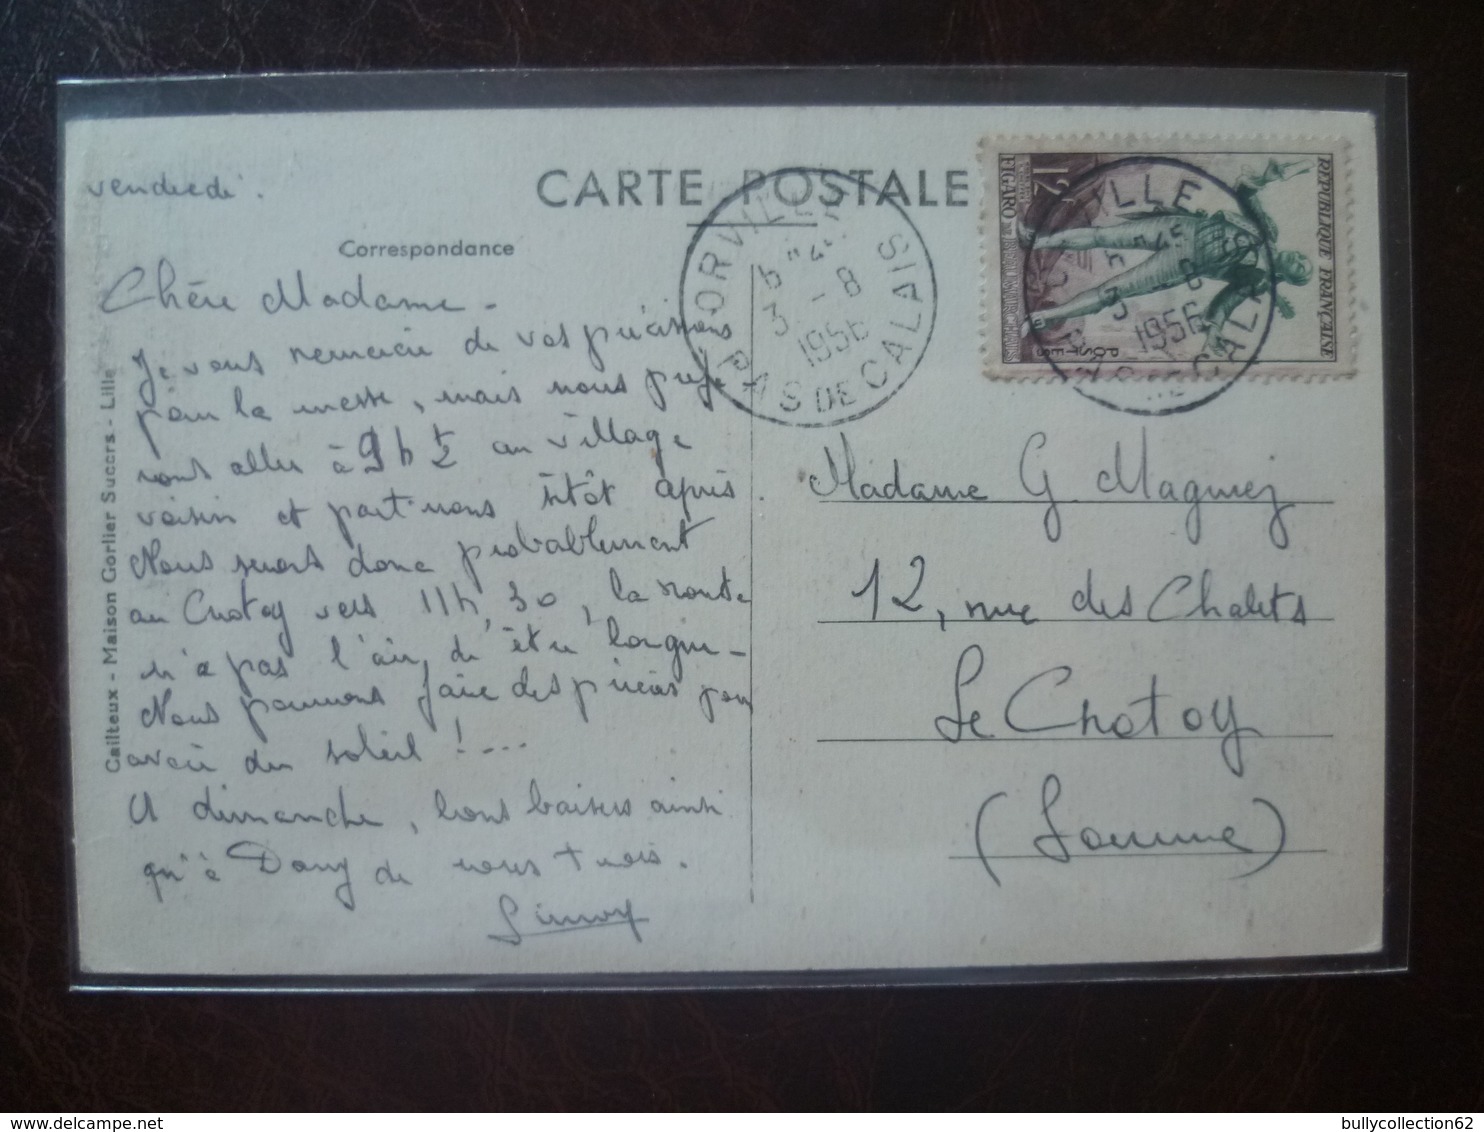 vendredi.
CARTE POSTALE
Correspondance
Chère Madame -
Je vous remercie de vos précisions
pour la messe, mais nous préfé
rons aller à 9h ½ au village
voisin et partirons sitôt après.
Nous serons donc probablement
au Crotoy vers 11h,30, la route
n'a pas l'air d'être longue -
Nous pouvons faire des prières pour
avoir du soleil !...
A dimanche, bons baisers ainsi
qu'à Dany de nous trois.
Cailteux - Maison Gorlier Succrs - Lille
CORVILLE
3 - 8
1956
PAS DE CALAIS
REPUBLIQUE FRANÇAISE
12F
FIGARO
POSTES
3 - 8
1956
Madame G. Magniez
12, rue des Chalets
Le Crotoy
(Somme)
bullycollection62